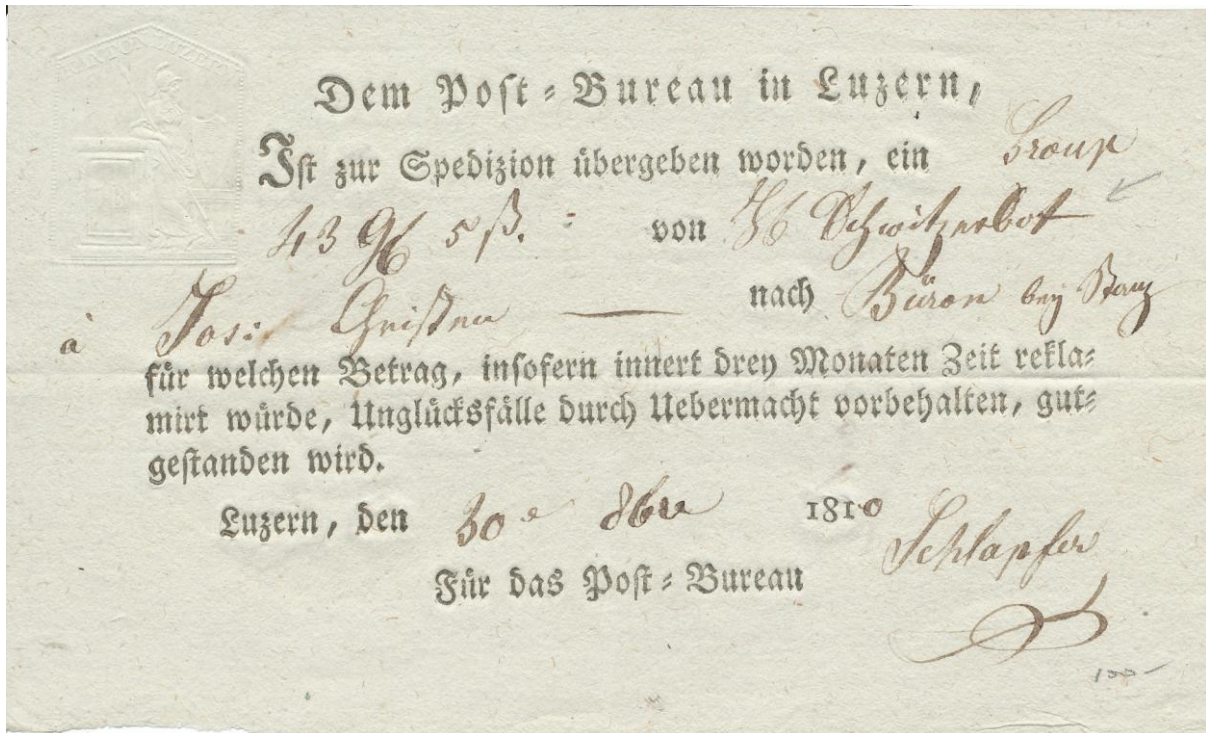 CANTON LUZERN
Dem Post-Bureau in Luzern,
Ist zur Spedizion übergeben worden, ein Group
43 5 ß. von Schwitzerbot
à Jos: Christen nach Büron bey Stanz
für welchen Betrag, insofern innert drey Monaten Zeit rekla-
mirt würde, Unglücksfälle durch Uebermacht vorbehalten, gut-
gestanden wird.
Luzern, den 30e 8bre 1810
Schlapfer
Für das Post-Bureau
100-